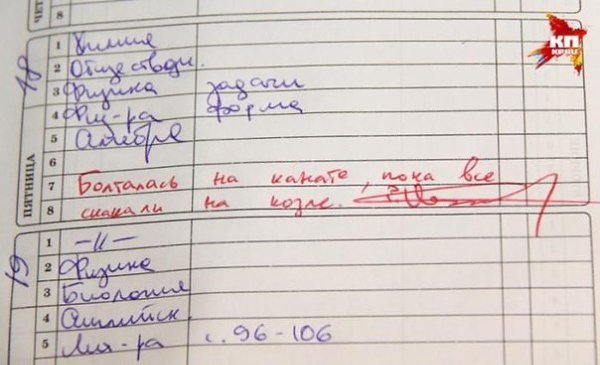 ЧЕТ
8
18
ПЯТНИЦА
1 Химия
2 Обществозн.
3 Физика задачи
4 Физ-ра форма
5 Алгебра
6
7 Болталась на канате, пока все
8 скакали на козле.
19
1 –"–
2 Физика
3 Биология
4 Английск.
5 Лит-ра с. 96-106
КП
KP.RU